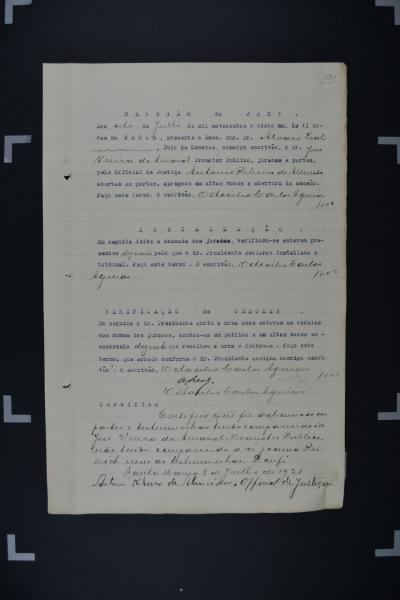 121
SESSÃO do JURY.
Aos oito de Julho de mil novecentos e vinte um. As 11 ho-
ras no FORUM, presente o Exmo. Snr. Dr. Alvaro Leal
, Juiz de Comarca, commigo escrivão, o dr. José
Vieira do Amaral Promotor Publico, jurados e partes,
pelo Official de Justiça Antonio Ribeiro de Almeida
abertas as portas, apregoou em altas vozes a abertura da sessão.
Faço este termo. O escrivão, Octacilio Carlos Aguiar
INSTALLAÇÃO.
Em seguida feita a chamada dos jurados, verificou-se estarem pre-
sentes dezoito pelo que o dr. Presidente declarou installado o
tribunal. Faço este termo. O escrivão, Octacilio Carlos
Aguiar
VERIFICAÇÃO de CEDULAS
Em seguida o dr. Presidente abriu a urna onde estavam as cedulas
com nomes dos jurados, contou-as em publico e em altas vozes en-
contrando dezoito que recolheu a urna e fechou-a. Faço este
termo, que achado conforme o dr. Presidente assigna commigo escri-
vão. O escrivão, Octacilio Carlos Aguiar
Octacilio Carlos Aguiar
Certifico
Certifico que fiz a chamada das
partes e testemunhas tendo comparecido
José Vieira do Amaral, Promotor Publico,
não tendo comparecido o réo
nem as testemunhas. Dou fé
Santa 8 de Julho de 1921
Antonio Ribeiro de Almeida, Official de Justiça